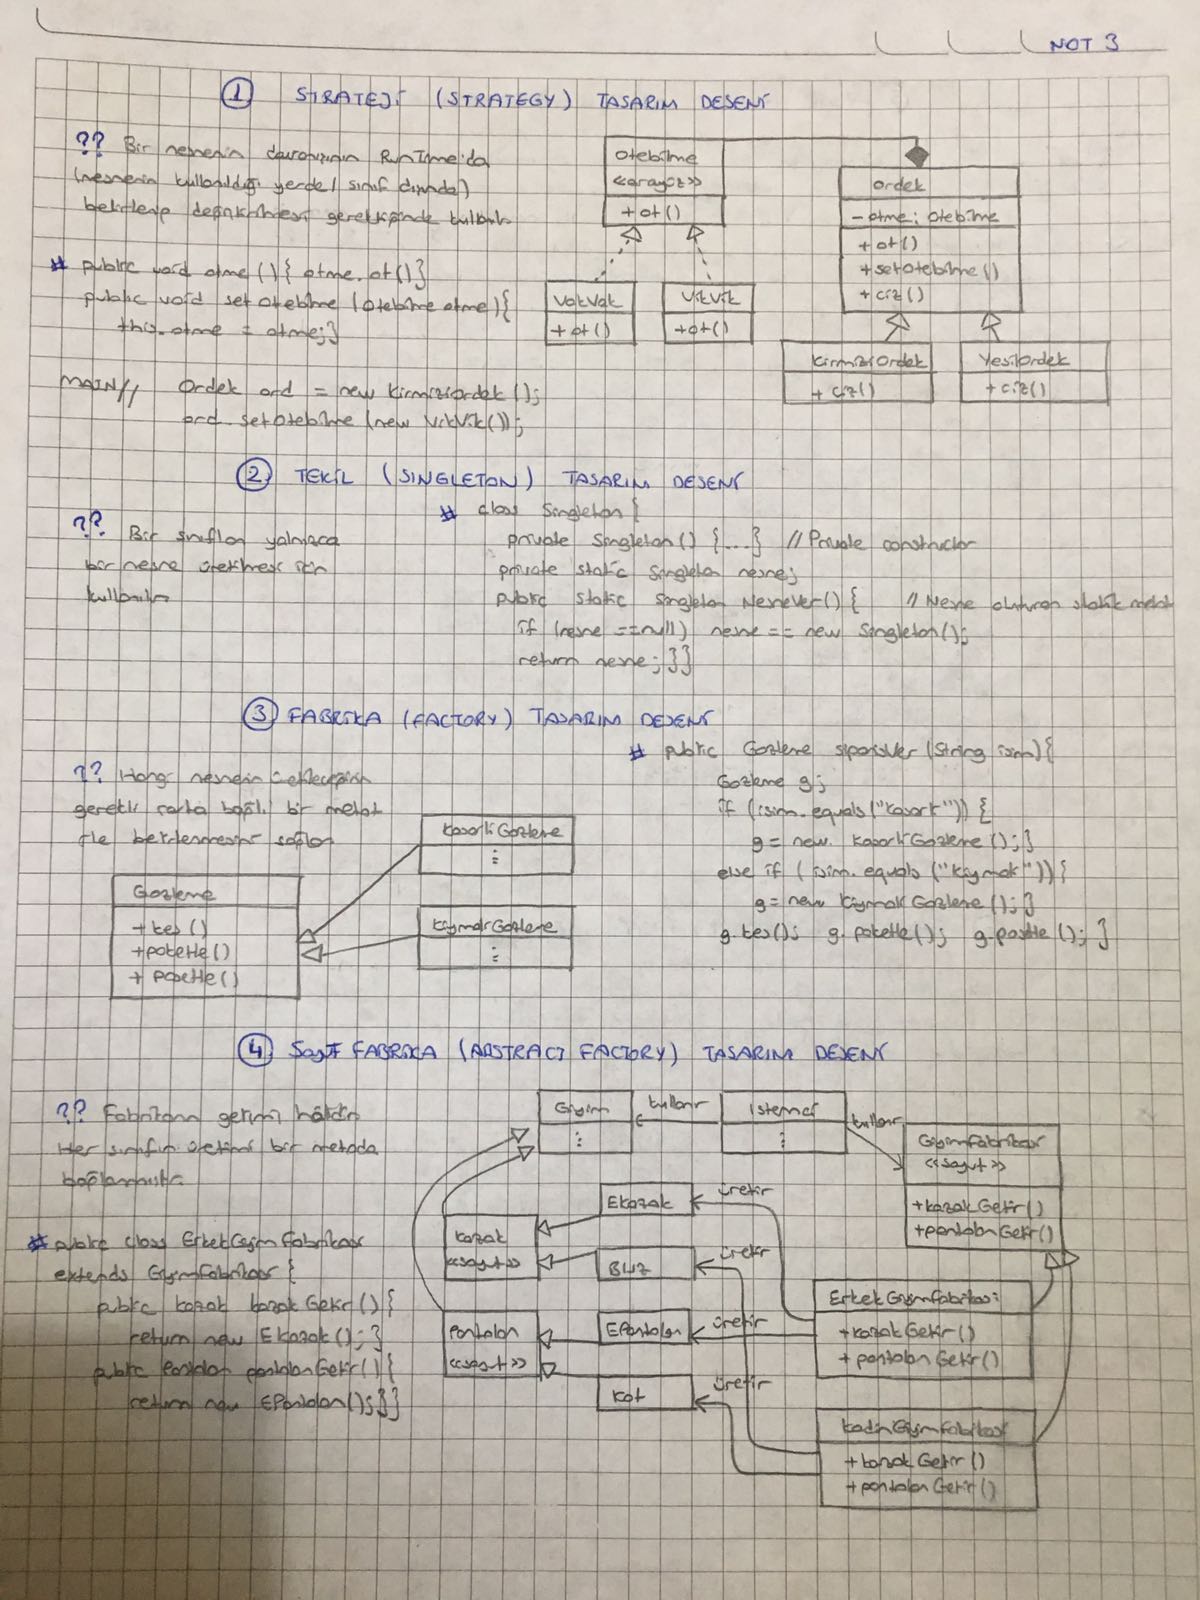 NOT 3
1 STRATEJİ (STRATEGY) TASARIM DESENİ
?? Bir nesnenin davranışının RunTime'da
(nesnenin kullanıldığı yerde / sınıf dışında)
belirlenip değiştirilmesi gerektiğinde kullanılır
# public void otme () { otme.ot() }
public void setOtebilme (Otebilme otme) {
this.otme = otme; }
MAIN // Ordek ord = new KirmiziOrdek ();
ord.setOtebilme (new VikVik());
Otebilme
<<arayüz>>
+ ot ()
VakVak
+ ot ()
VikVik
+ ot ()
Ordek
- otme: Otebilme
+ ot ()
+ setOtebilme ()
+ ciz ()
KirmiziOrdek
+ ciz ()
YesilOrdek
+ ciz ()
2 TEKİL (SINGLETON) TASARIM DESENİ
?? Bir sınıftan yalnızca
bir nesne üretilmesi için
kullanılır
# class Singleton {
private Singleton () {...} // Private constructor
private static Singleton nesne;
public static Singleton NesneVer() { // Nesne oluşturan statik metot
if (nesne == null) nesne == new Singleton ();
return nesne; }}
3 FABRİKA (FACTORY) TASARIM DESENİ
?? Hangi nesnenin üretileceğinin
gerekli şarta bağlı bir metot
ile belirlenmesini sağlar
Gozleme
+ kes ()
+ paketle ()
+
KasarliGozleme
⋮
KiymaliGozleme
⋮
# public Gozleme siparisVer (String isim) {
Gozleme g;
if (isim.equals ("Kasarli")) {
g = new KasarliGozleme (); }
else if (isim.equals ("Kiymali")) {
g = new KiymaliGozleme (); }
g.kes(); g.paketle(); }
4 SOYUT FABRİKA (ABSTRACT FACTORY) TASARIM DESENİ
?? Fabrikanın hâlidir.
Her sınıfın üretimi bir metoda
bağlanmıştır.
# public class ErkekGiyimFabrikasi
extends GiyimFabrikasi {
public Kazak kazakGetir () {
return new EKazak (); }
public Pantolon pantolonGetir () {
return new EPantolon (); }}
Giyim
⋮
kullanır
İstemci
⋮
kullanır
GiyimFabrikasi
<<soyut>>
+ kazakGetir ()
+ pantolonGetir ()
Kazak
<<soyut>>
Pantolon
<<soyut>>
EKazak
üretir
Bluz
üretir
EPantolon
üretir
Kot
üretir
ErkekGiyimFabrikasi
+ kazakGetir ()
+ pantolonGetir ()
KadinGiyimFabrikasi
+ kazakGetir ()
+ pantolonGetir ()